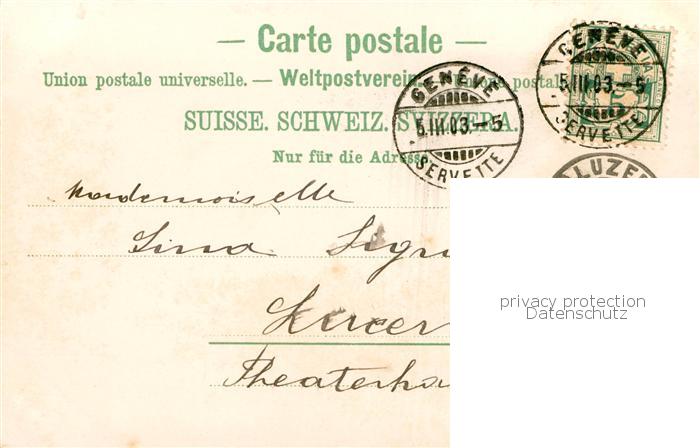 — Carte postale —
Union postale universelle. — Weltpostverein
SUISSE. SCHWEIZ. SVIZZERA.
Nur für die Adresse.
GENÈVE
5.III.03.–5
SERVETTE
GENÈVE
5.III.03.–5
SERVETTE
LUZE
Mademoiselle
Lina
Luzer
Theaterha
privacy protection
Datenschutz